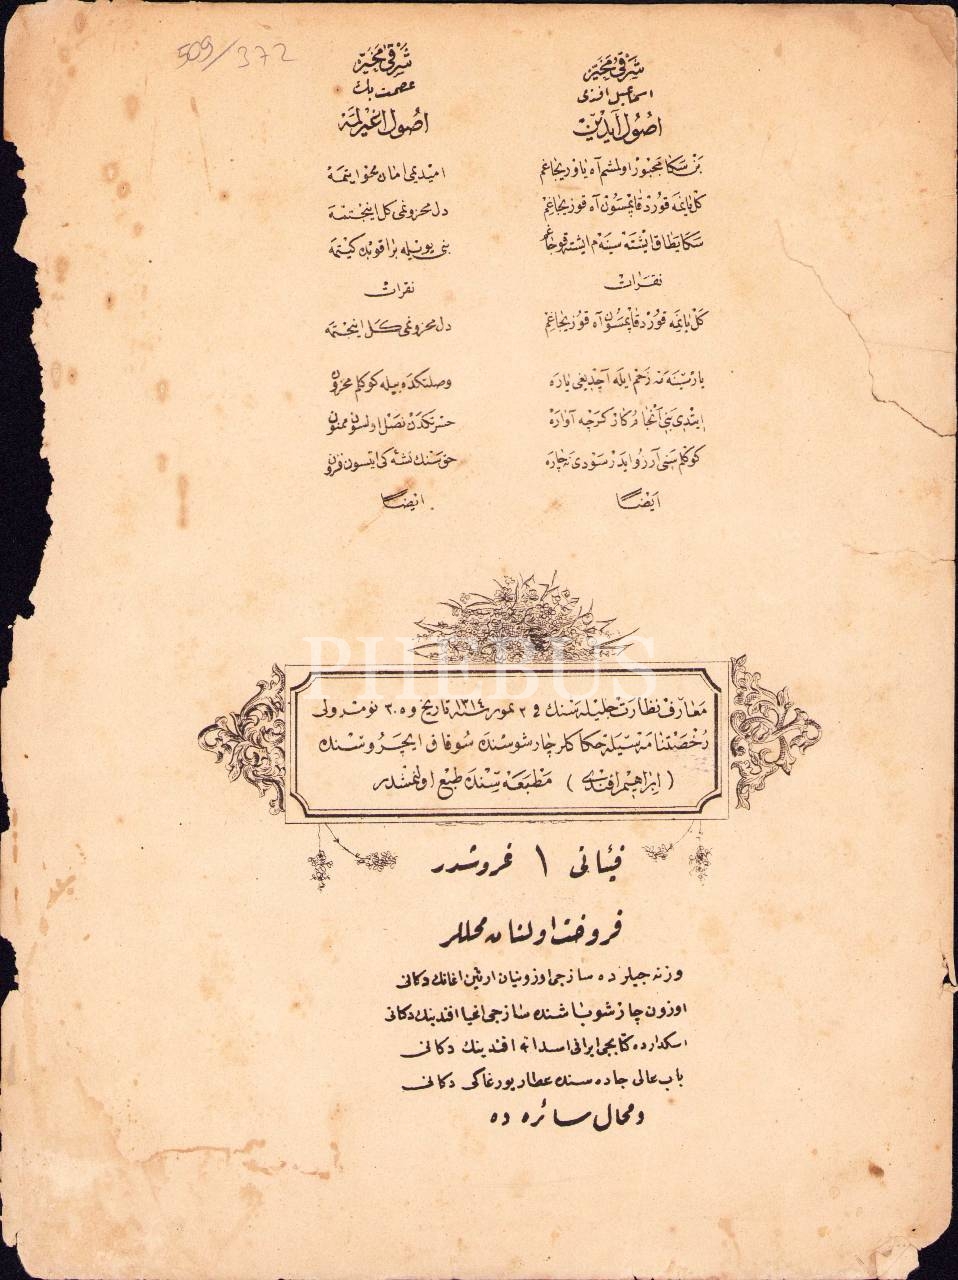 509/372
شرقی مخیر
اسماعیل افندی
اصول آیدین
بن سكا مجبور اولمشم آه یاوریجاغم
كل یانمه قورد قاپمسون آه قوزیجاغم
سكا یطاق ایشته سینه م ایشته قوجاغم
نقرات
كل یانمه قورد قاپمسون آه قوزیجاغم
یار سینه مه زخم ایله آچدیغی یاره
ایتدی بنی آنجام كار كرچه آواره
كوكلم سنی آرزو ایدر سودی نه چاره
ایضاً
شرقی مخیر
عصمت بك
اصول اغیرلمه
امیدیمی امان محو ایتمه
دل محزونمی كل اینجتمه
بنی بویله براقوبده كیتمه
نقرات
دل محزونمی كل اینجتمه
وصلتكده بیله كوكلم محزون
حسرتكدن نصل اولسون ممنون
حق سنك نشئه كی ایتسون فزون
ایضاً
PHEBUS
معارف نظارت جلیله سنك فی ٢ تموز سنه ١٣١٤ تاریخ و ٣٠٥ نومرولی
رخصتنامه سیله حكاكلر چارشوسنده سوقاق ایچروسنده
( ابراهیم افندی ) مطبعه سنده طبع اولنمشدر
فیئاتی ١ غروشدر
فروخت اولنان محللر
وزنه جیلرده سازجی اوزونیان ارتین اغانك دكانی
اوزون چارشو باشنده سازجی افندینك دكانی
اسكدارده كتابجی ایرانی اسدالله افندینك دكانی
باب عالی جاده سنده عطار یورغاكی دكانی
و محال سائره ده